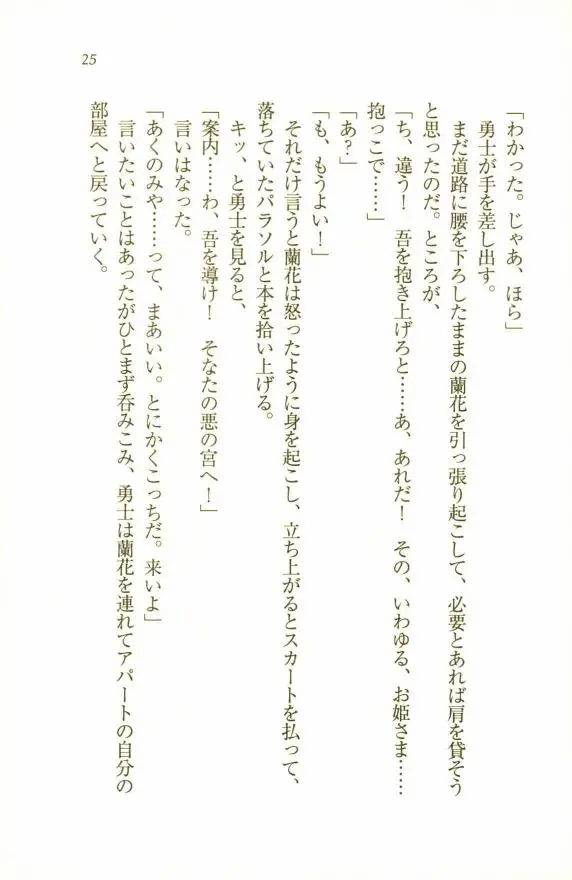 25
「わかった。じゃあ、ほら」
勇士が手を差し出す。
まだ道路に腰を下ろしたままの蘭花を引っ張り起こして、必要とあれば肩を貸そう
と思ったのだ。ところが、
「ち、違う！　吾を抱き上げろと……あ、あれだ！　その、いわゆる、お姫さま……
抱っこで……」
「あ？」
「も、もうよい！」
それだけ言うと蘭花は怒ったように身を起こし、立ち上がるとスカートを払って、
落ちていたパラソルと本を拾い上げる。
キッ、と勇士を見ると、
「案内……わ、吾を導け！　そなたの悪の宮へ！」
言いはなった。
「あくのみや……って、まあいい。とにかくこっちだ。来いよ」
言いたいことはあったがひとまず呑みこみ、勇士は蘭花を連れてアパートの自分の
部屋へと戻っていく。